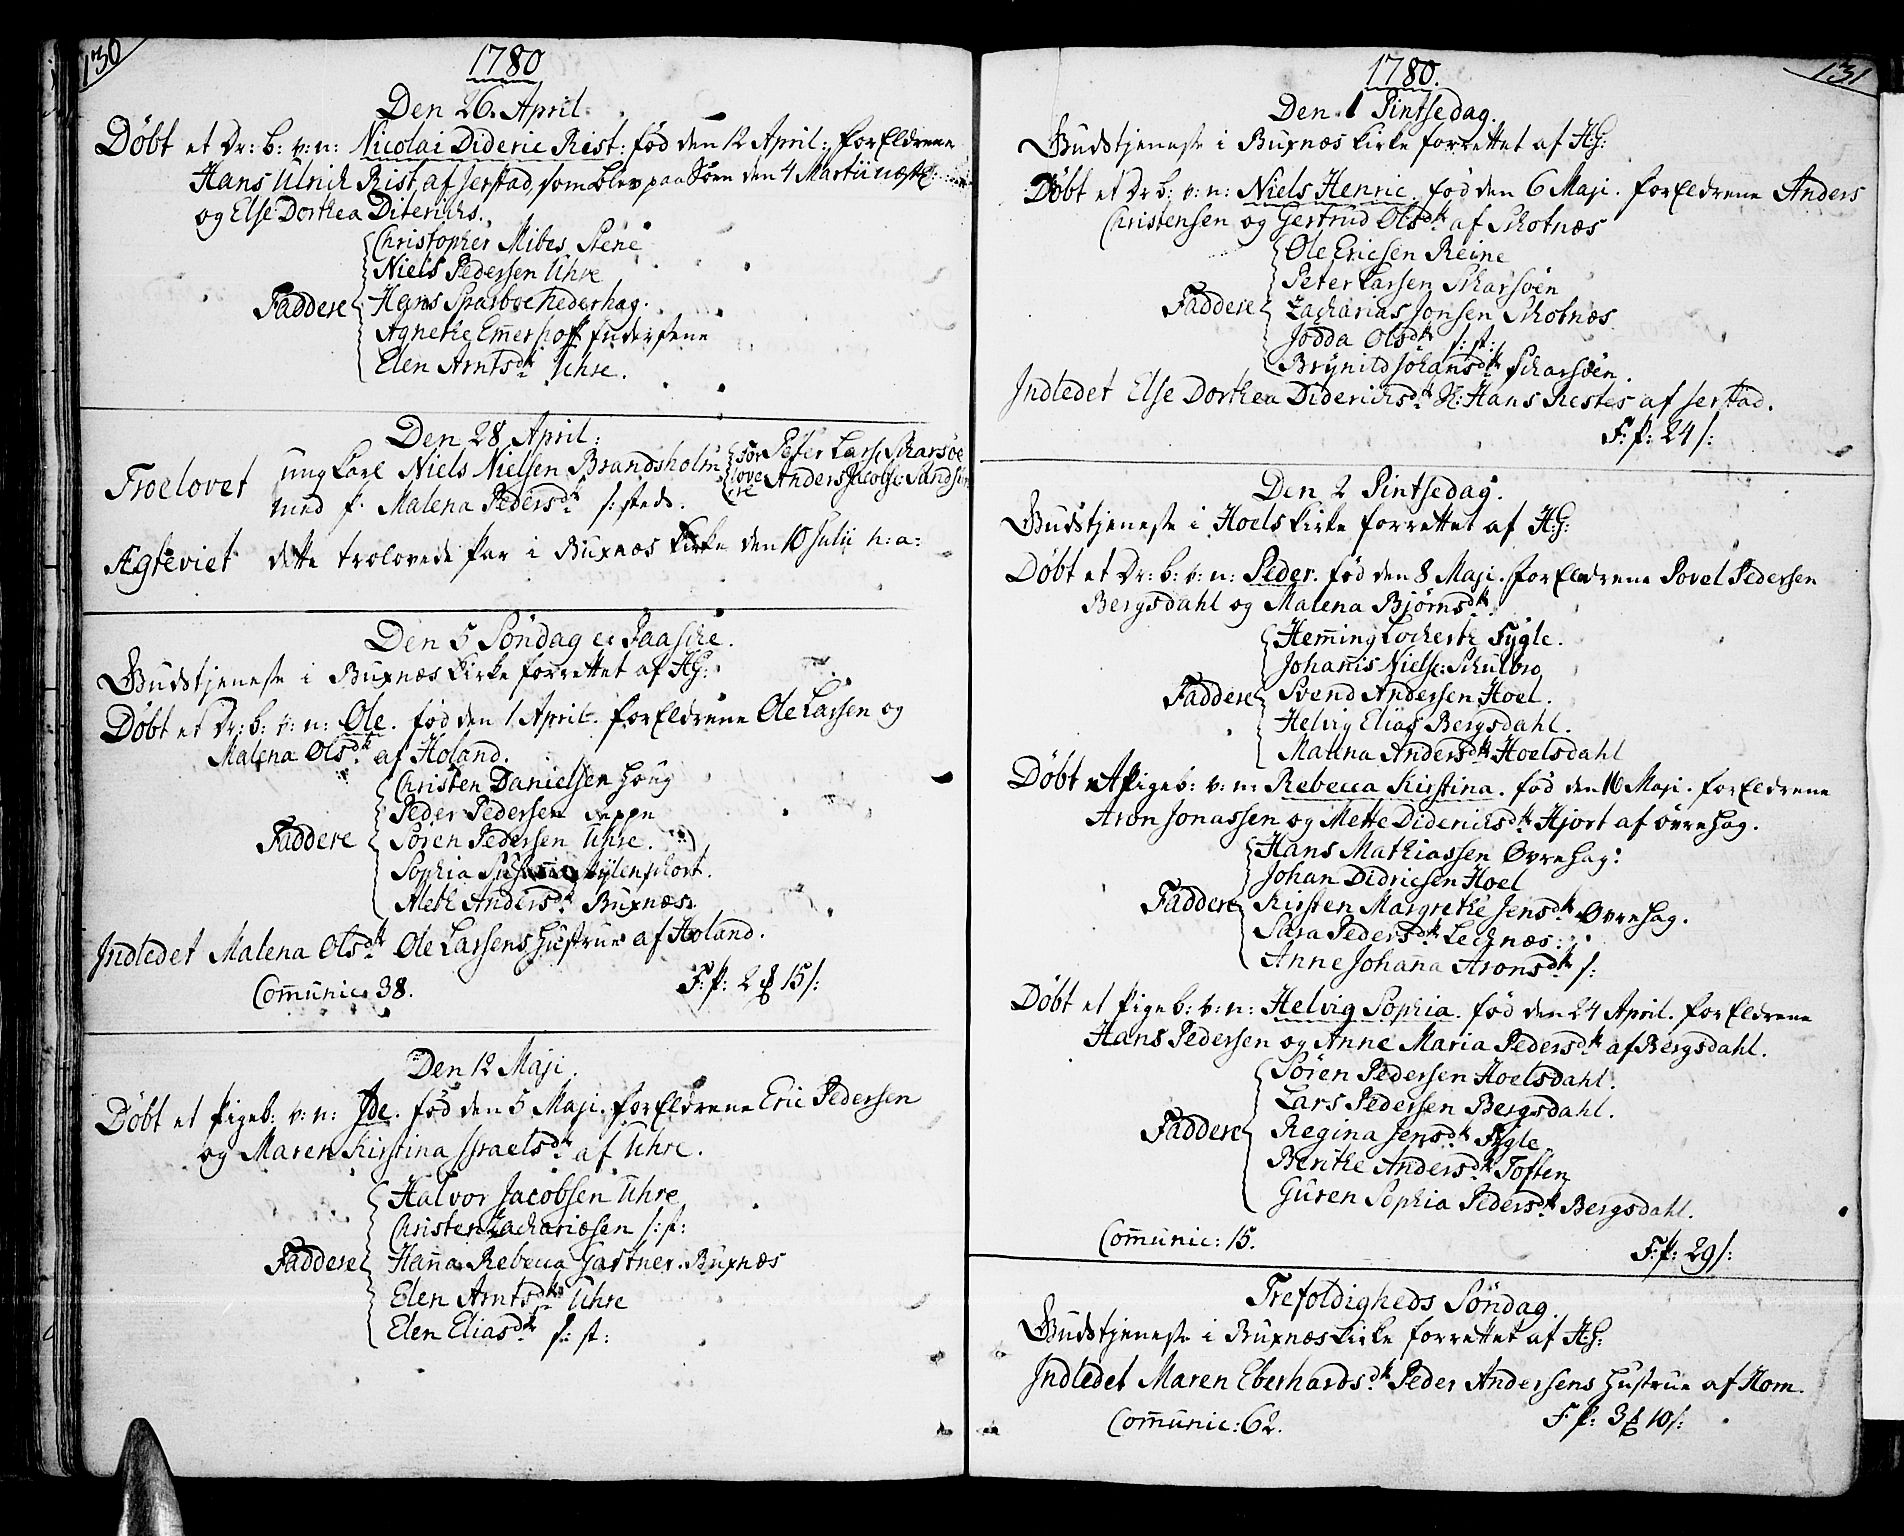 130
1780
Den 26. April.
Döbt et Dr: b: v: n: Nicolai Dideric Rist: föd den 12 April: forEldrene
Hans Ulrich Rist, af Jerstad, som blev paa Söen den 4 Martii næstl:
og Else Dorthea Diterichs.
Christopher Mibes Stene
Niels Pedersen Uhre
Faddere Hans Sparboe Nederhag.
Agnethe Emerhoff Inderstene
Elen Arntsdr Uhre.
Den 28 April:
Troelovet ung Karl Niels Nielsen Brandsholm for Peter Lars: Scharsöe
med p. Malena Pedersdr s: steds. love Anders Jacobs: Sands
re
Ægteviet dette trolovede Par i Buxnæs Kirke den 10 Julii h: a:
Den 5 Söndag ec Paasche.
Gudstjeneste i Buxnæs Kirke forrettet af HG:
Döbt et Dr: b: v: n: Ole. föd den 1 April. forEldrene Ole Larsen og
Malena Olsdr af Holand.
Christen Danielsen Houg
Peder Pedersen Reppe
Faddere Sören Pedersen Uhre.
Sophia Susanna Gyldenschort.
Aleth Andersdr Buxnæs.
Indledet Malena Olsdr Ole Larsens Hustrue af Holand.
Comunic: 38. F: P: 2 ₰ 15 s:
Den 12 Maji.
Döbt et Pigeb: v: n: Ide. föd den 5 Maji. forEldrene Eric Pedersen
og Maren Kirstina Israelsdr af Uhre.
Halvor Jacobsen Uhre
Christen Zachariæsen s: st:
Faddere Hanna Rebecca Gartner. Buxnæs
Elen Arntsdr Uhre
Elen Eliasdr s: st:
131
1780.
Den 1 Pintsedag.
Gudstjeneste i Buxnæs Kirke forrettet af HG:
Döbt et Dr b: v: n: Niels Henric, föd den 6 Maji. forEldrene Anders
Christensen og Gertrud Olsdr af Skotnæs
Ole Ericsen Reine
Peter Larsen Skarsöen
Faddere Zacharias Jonsen Skotnæs
Jödda Olsdr s: st:
Brynild Johansdr Scharsöen.
Indledet Else Dorthea Diderichsdr S: Hans Restes af Jerstad.
F: P: 24 s:
Den 2 Pintsedag.
Gudstjeneste i Hoels Kirke forrettet af HG:
Döbt et Dr: b: v: n: Peder. föd den 8 Maji. forEldrene Povel Pedersen
Bergsdahl og Malena Björnsdr
Heming Lochertz Fygle.
Johanis Niels: Schulbro
Faddere Svend Andersen Hoel.
Helvig Elias Bergsdahl.
Malena Andersdr Hoelsdahl
Döbt et Pigeb: v: n: Rebecca Kirstina. föd den 16 Maji. forEldrene
Aron Jonassen og Mette Diderichsdr Hjort af övrehag.
Hans Mathiassen Øvrehag:
Johan Didricsen Hoel
Faddere Kirsten Margrethe Jensdr Øvrehag.
Sara Pedersdr Lechnæs:
Anne Johanna Aronsdr s:
Döbt et Pigeb: v: n: Helvig Sophia. föd den 24 April. forEldrene
Hans Pedersen og Anne Maria Pedersdr af Bergsdahl.
Sören Pedersen Hoelsdahl.
Lars Pedersen Bergsdahl.
Faddere Regina Jensdr Fygle
Berithe Andersdr Toften
Guren Sophia Pedersdr Bergsdahl.
Comunic: 15. F: P: 29 s:
Trefoldigheds Söndag.
Gudstjeneste i Buxnæs Kirke forrettet af HG:
Indledet Maren Eberhardsdr Peder Andersens Hustrue af Hom.
Comunic: 62. F: P: 3 ₰ 10 s: